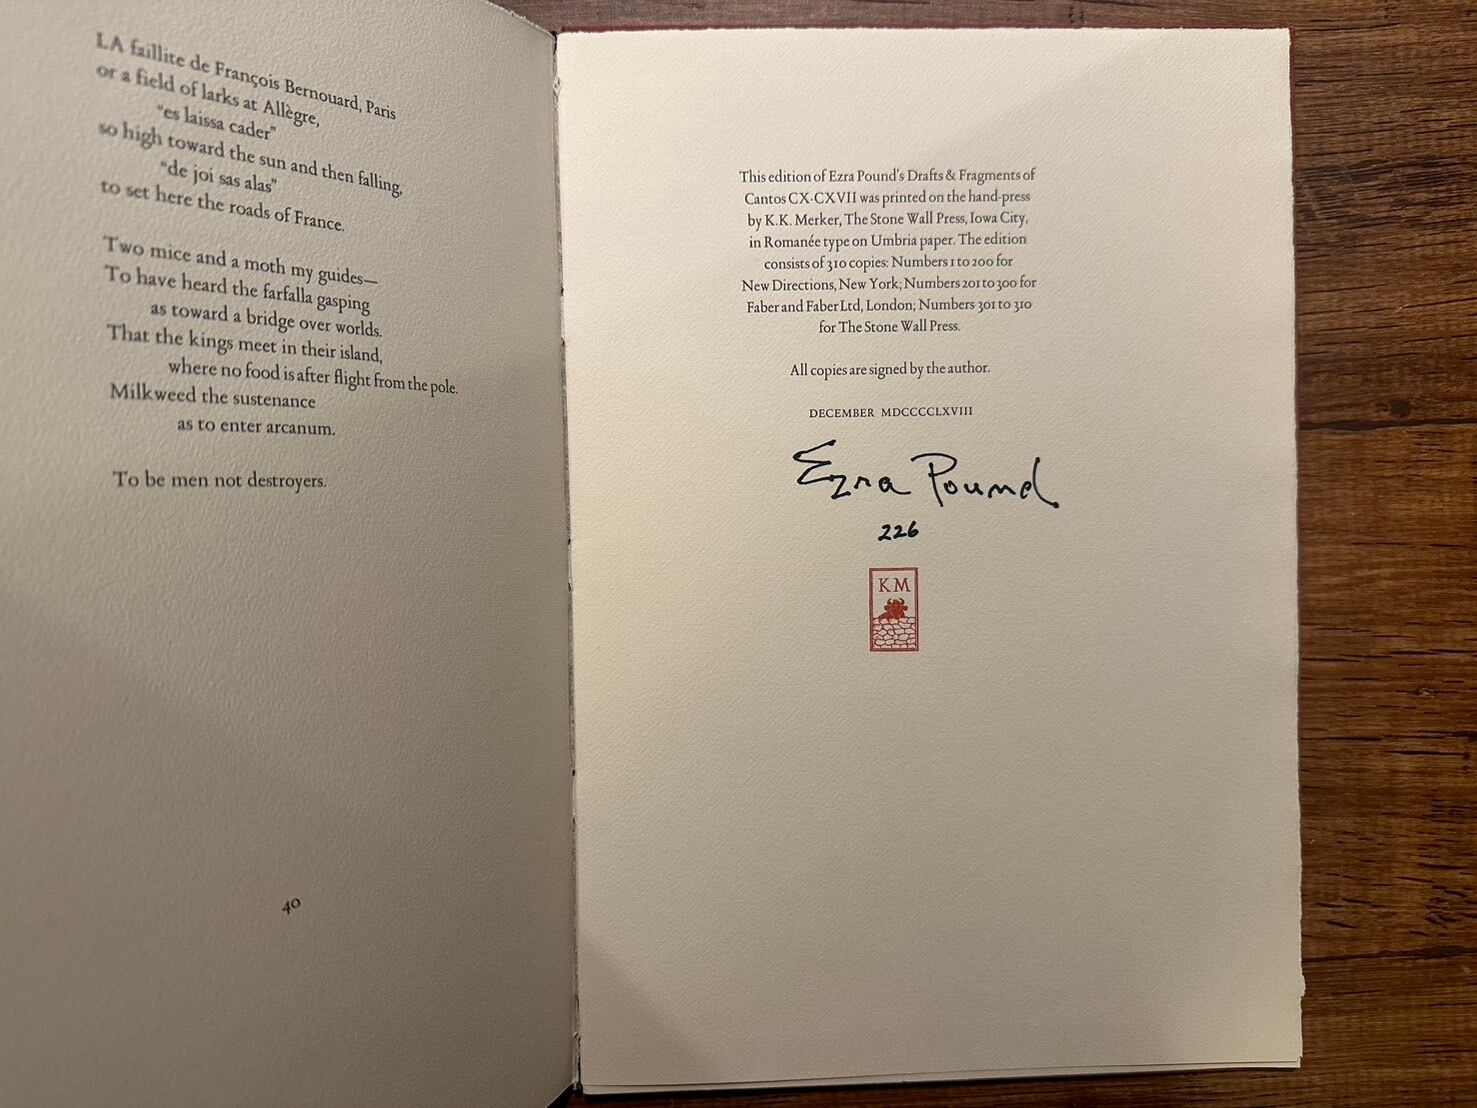 LA faillite de François Bernouard, Paris
or a field of larks at Allègre,
"es laissa cader"
so high toward the sun and then falling,
"de joi sas alas"
to set here the roads of France.
Two mice and a moth my guides—
To have heard the farfalla gasping
as toward a bridge over worlds.
That the kings meet in their island,
where no food is after flight from the pole.
Milkweed the sustenance
as to enter arcanum.
To be men not destroyers.
40
This edition of Ezra Pound's Drafts & Fragments of
Cantos CX-CXVII was printed on the hand-press
by K.K. Merker, The Stone Wall Press, Iowa City,
in Romanée type on Umbria paper. The edition
consists of 310 copies: Numbers 1 to 200 for
New Directions, New York; Numbers 201 to 300 for
Faber and Faber Ltd, London; Numbers 301 to 310
for The Stone Wall Press.
All copies are signed by the author.
DECEMBER MDCCCCLXVIII
Ezra Pound
226
KM